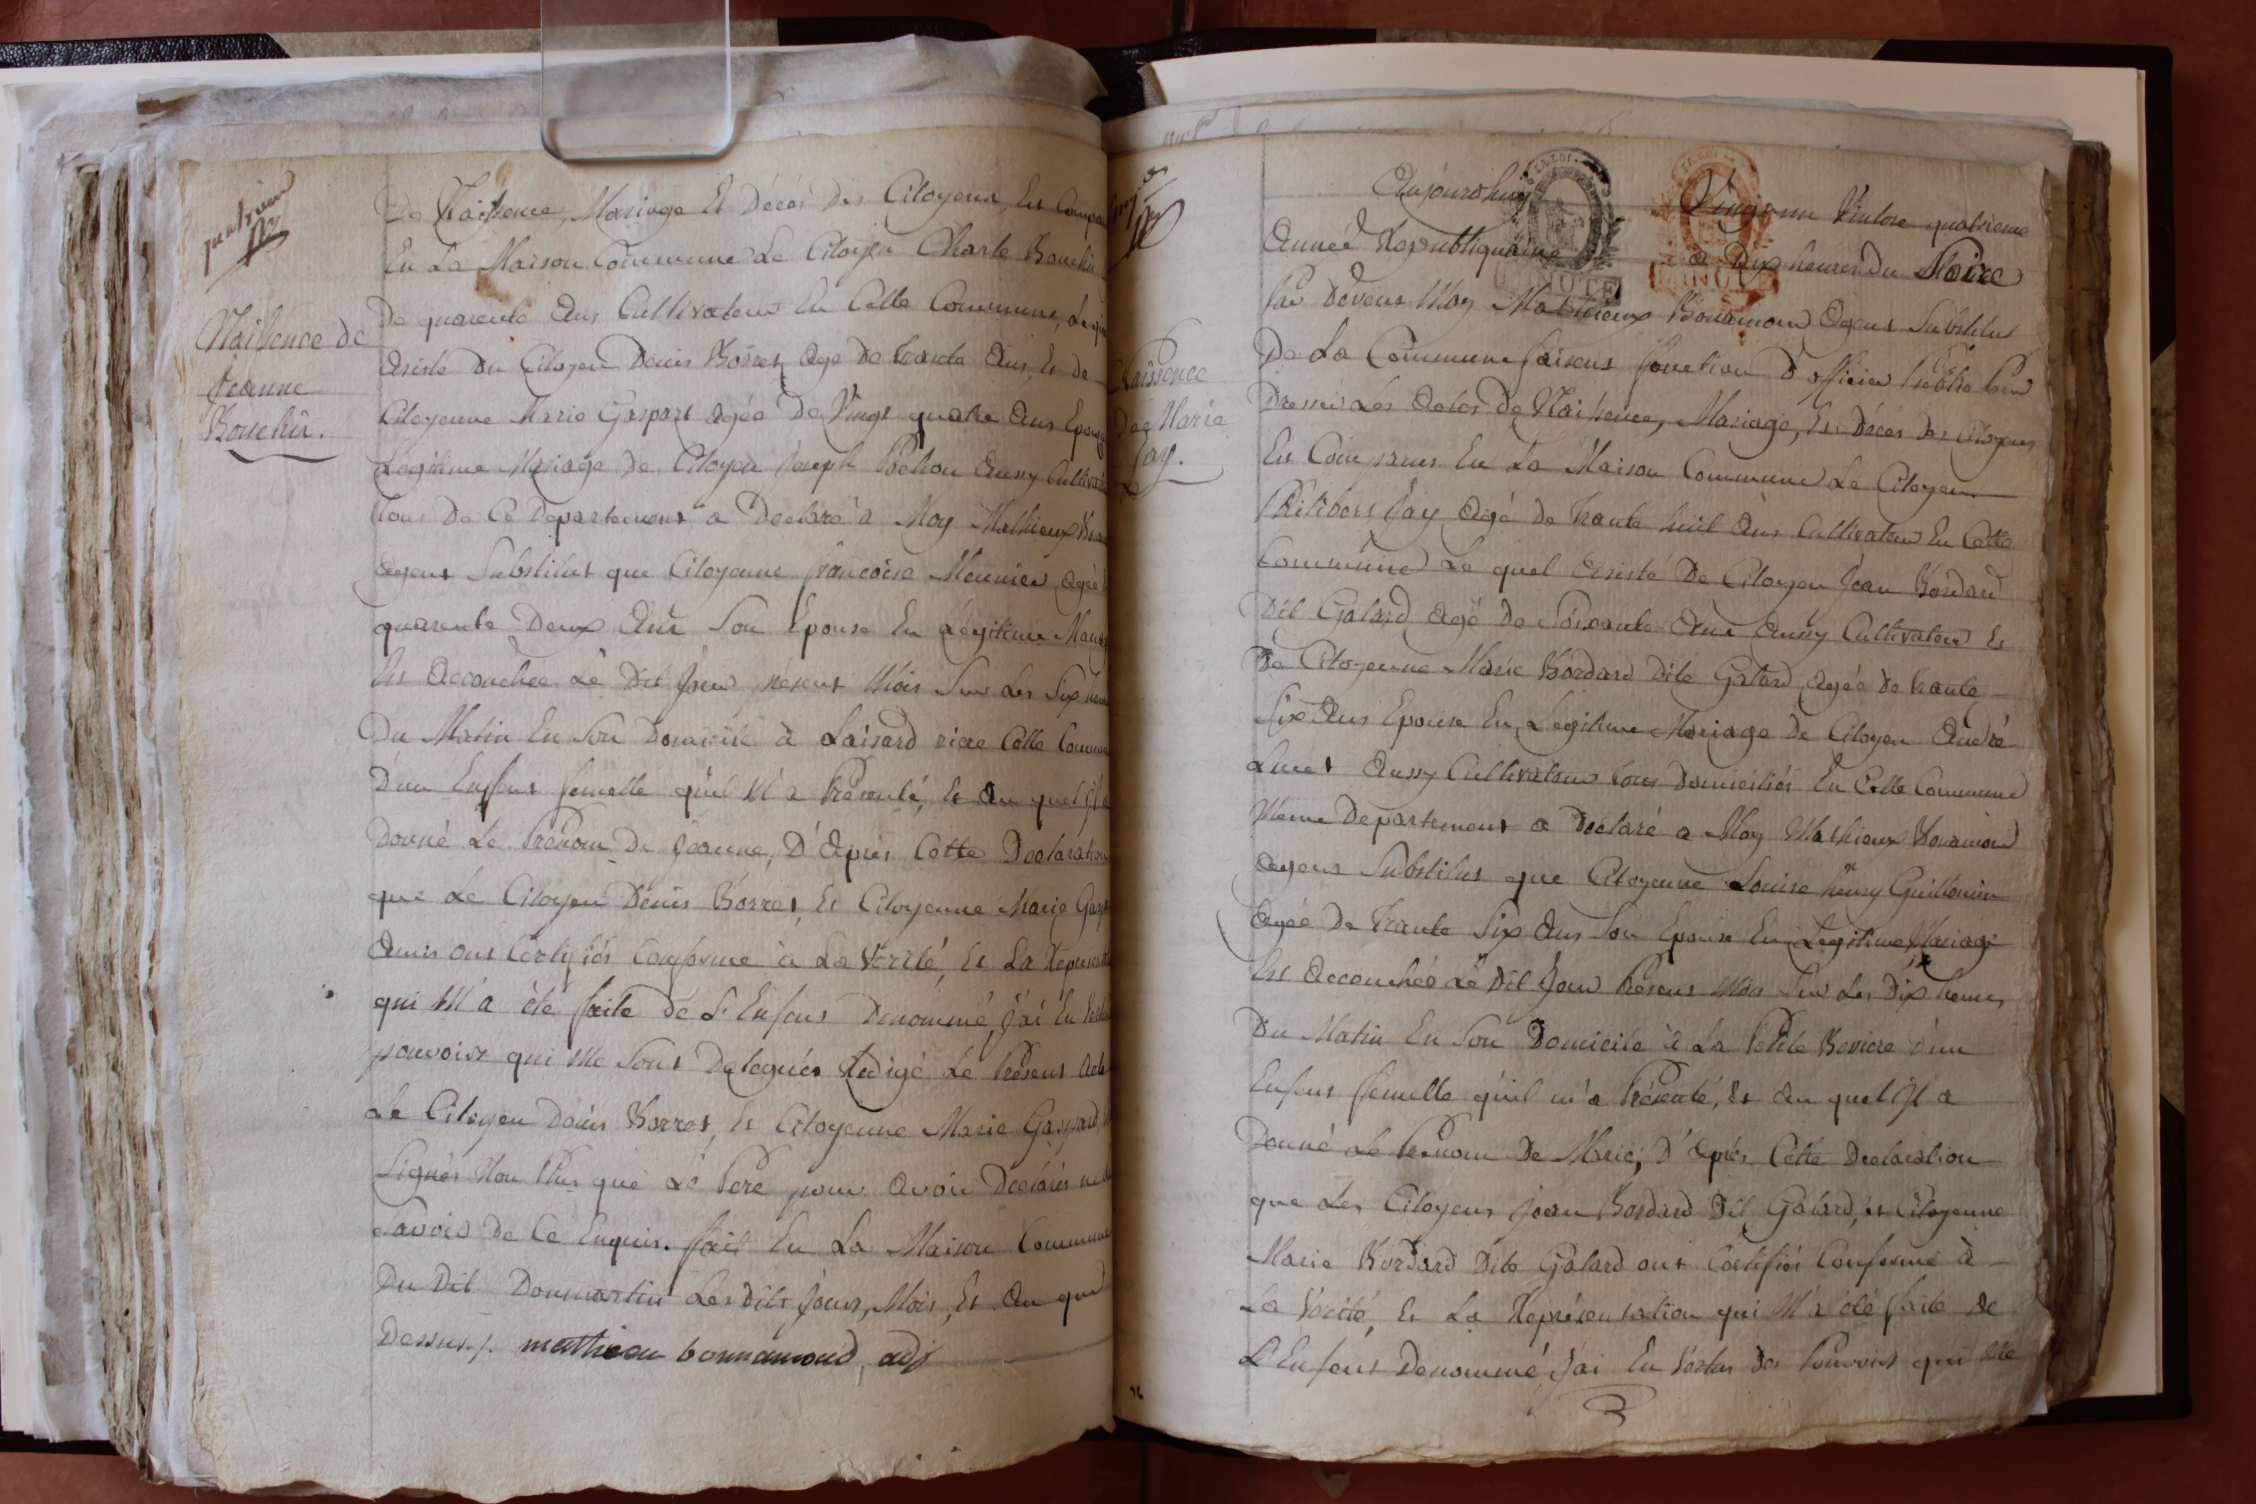 quatrieme
Naissence de
Jeanne
Bouchin.
De Naissence, Mariage Et Décés des Citoyens, Est Compar
En La Maison Commune Le Citoyen Charle Bouchin
De quarente Ans Cultivateur En Cette Commune, Lequ
Asisté Du Citoyen Denis Borret, Agé De trante Ans, Et de
Citoyenne Marie Gaspart Agée De Vingt quatre Ans Epouse
Legitime Mariage De Citoyen Joseph Pochon Aussy Cultivat
Tous De Ce Departement a Declaré a Moy Mathieux Bona
Agent Substitut que Citoyenne françoise Meunier Agée
quarente Deux Ans Son Epouse En Légitime Mariag
Est Accouchée Le Dit Jour présent Mois Sur Les Six heures
Du Matin En Son Domicile à Laisard riere Cette Commun
D'un Enfant femelle qu'il M'a Présenté, Et Au quel Jl a
Donné Le Prénom De Jeanne, D'Après Cette Declaration
que Le Citoyen Denis Borret, Et Citoyenne Marie Gasp
Amis Ont Certifiés Conforme à La Vérité, Et La Représent
qui M'a été faite de L'Enfant Dénommé, J'ai En Vertu
pouvoirs qui Me Sont Délegués Rédigé Le Présent Acte
Le Citoyen Denis Borret, Et Citoyenne Marie Gaspard
Signés Non Plus que Le Pere pour Avoir Déclarés ne
Savoir De Ce Enquis. fait En La Maison Commune
Du Dit Dommartin Les Dits Jour, Mois, Et An que
Dessus./. mathieu bonnamoud, adj
Naissence
De Marie
Jay.
LA LOI
LA LOI
Aujourdhuy Vingt un Vintose quatrieme
Année Republiquaine a Dix heures du Soire
Par Devent Moy Mathieux Bonamour Agent Substitut
De La Commune faisent fonction D'officier Public Pour
Dressér Les Actes De Naissence, Mariage, Et Décés Des Citoyens
Est Comparus En La Maison Commune Le Citoyen
Philibert Jay Agé De trante huit Ans Cultivateur En Cette
Commune Le quel Asisté De Citoyen Jean Bordard
Dit Galard Agé De Soixante Ans Aussy Cultivateur Et
De Citoyenne Marie Bordard Dite Galard Agée De trante
Six Ans Epouse En Legitime Mariage De Citoyen André
Aussy Cultivateur tous Domiciliés En Cette Commune
Même Departement a Declaré a Moy Mathieux Bonamour
Agent Substitut que Citoyenne Louise henry Guillomin
Agée De trante Six Ans Son Epouse En Legitime Mariage
Est Accouchée Le Dit Jour Présent Mois Sur Les Dix heures
Du Matin En Son Domicile à La Petite D'un
Enfant femelle qu'il m'a Présenté, Et Au quel Jl a
Donné Le Prénom De Marie, D'Après Cette Declaration
que Les Citoyens Jean Bordard Dit Galard, et Citoyenne
Marie Bordard Dite Galard ont Certifiés Conforme à
La Vérité, Et La Représentation qui M'a été faite De
L'Enfant Denommé, J'ai En Vertus Des Pouvoirs qui Me